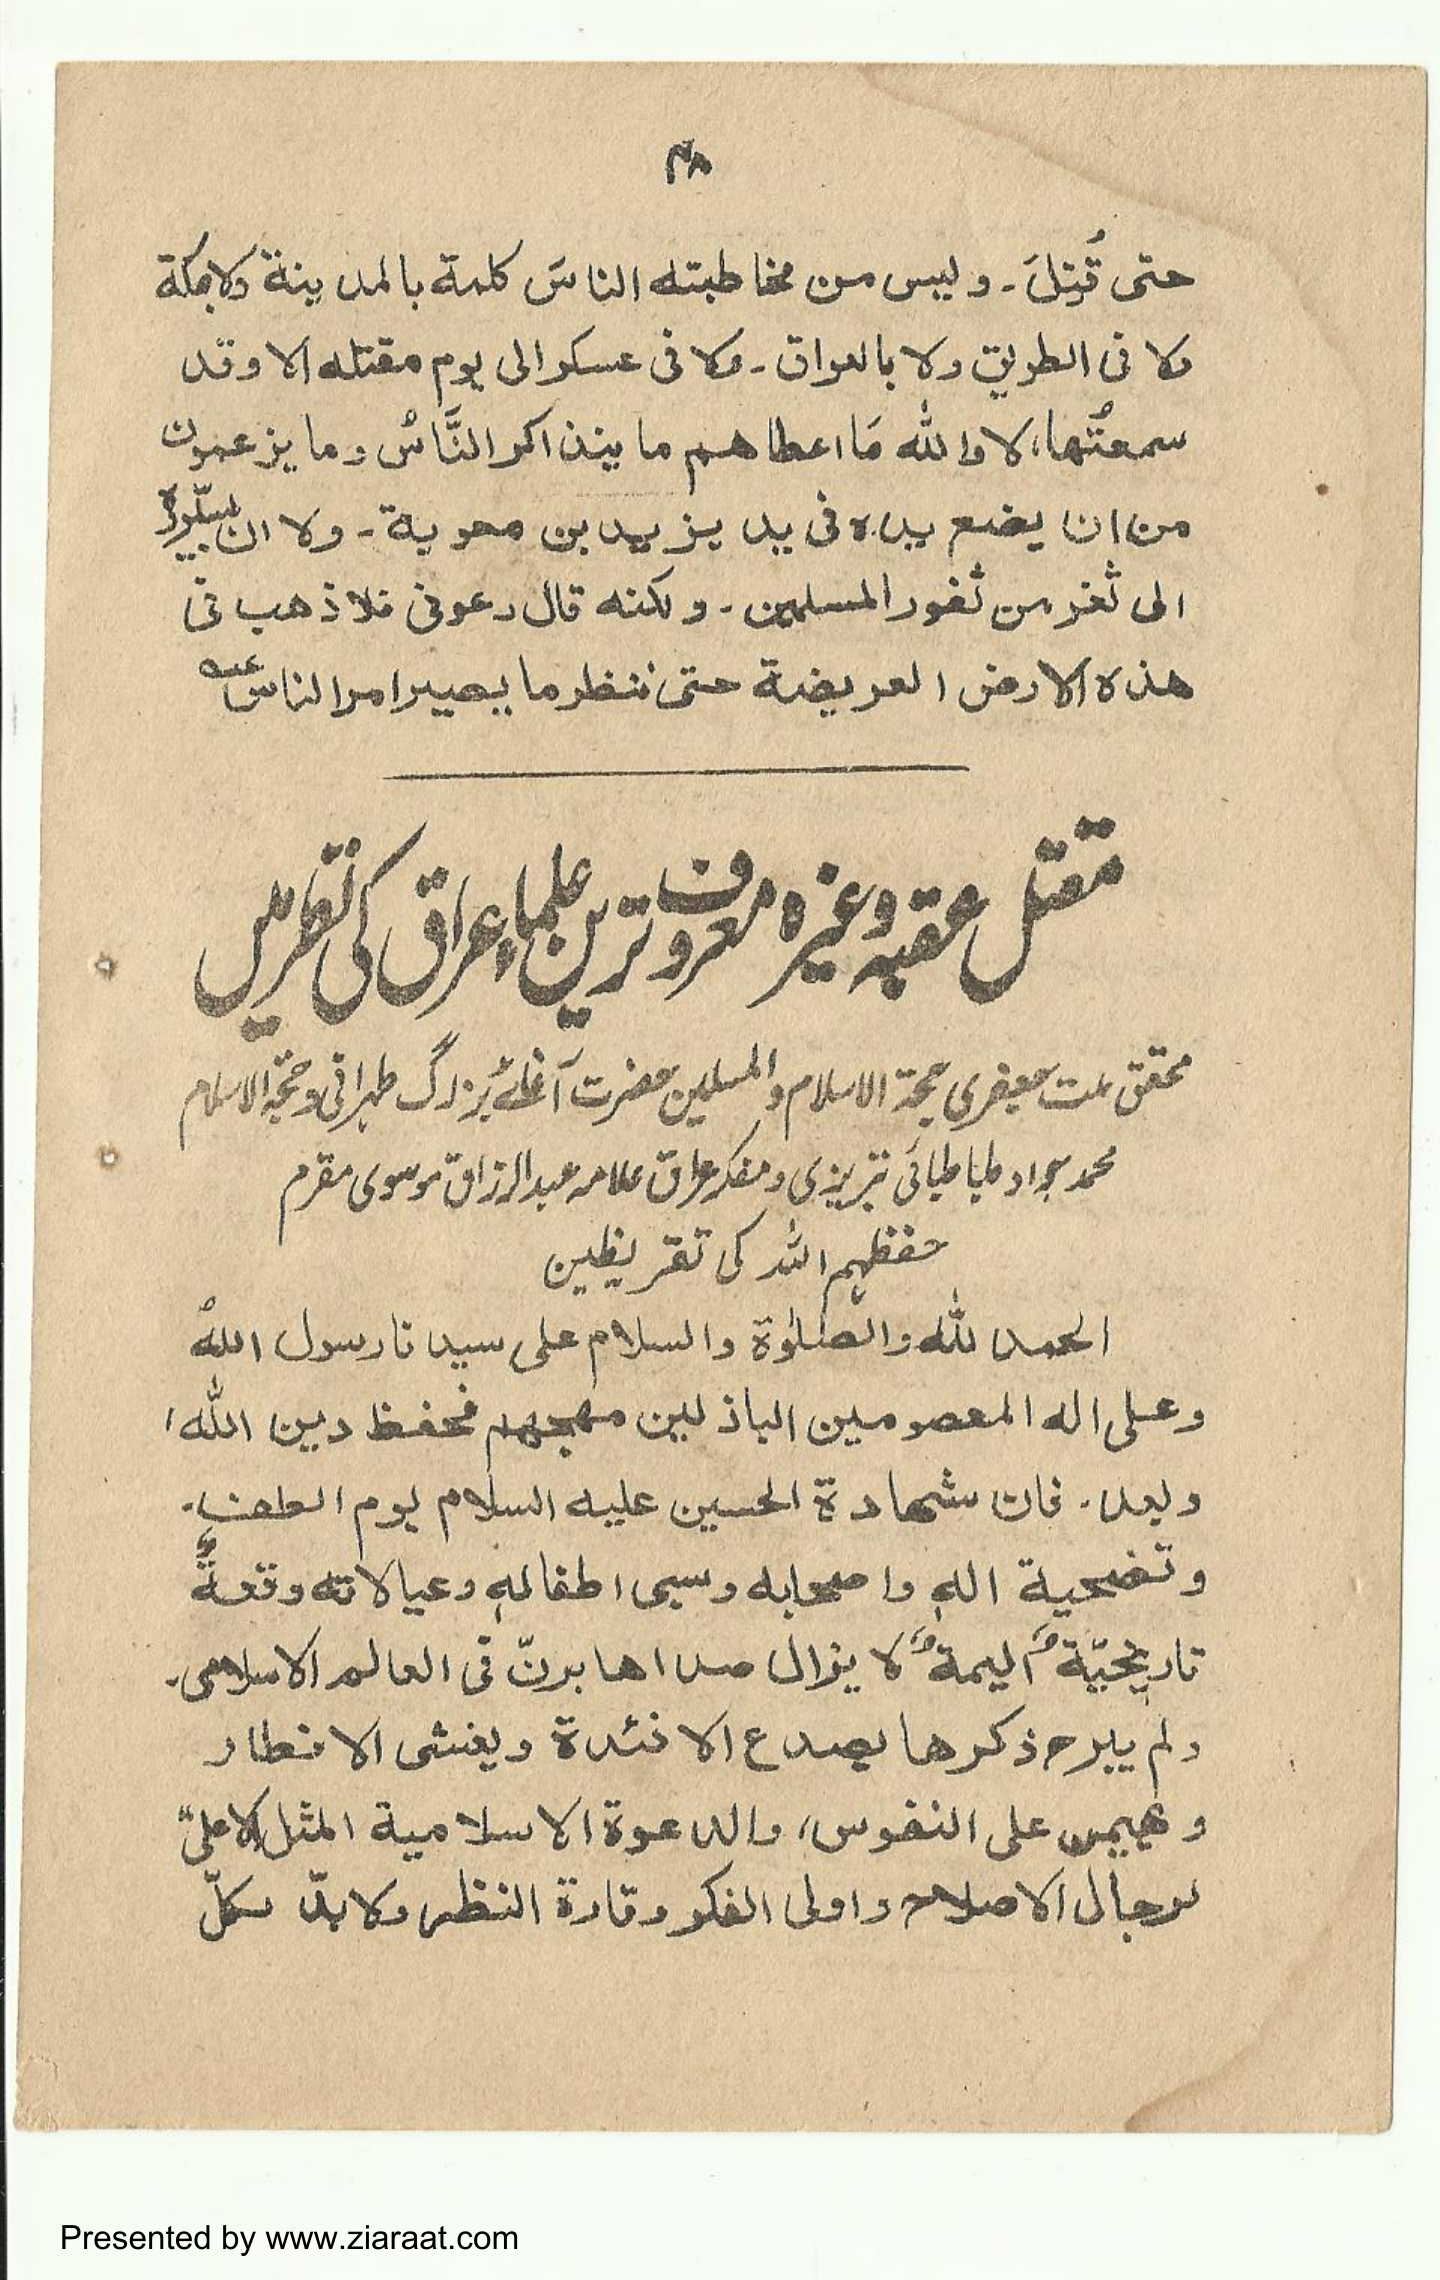 ۴۸
حتی قُتِلَ۔ ولیس من مخاطبته الناسَ کلمة بالمدینة ولا بمکة
ولا فی الطریق ولا بالعراق۔ ولا فی عسکر الی یوم مقتله الا وقد
سمعتُها، لا والله مَا اعطاهم ما یتذاکر النَّاسُ وما یزعمون
من ان یضع یده فی ید یزید بن معویة۔ ولا ان یسیّروه
الی ثغر من ثغور المسلمین۔ ولکنه قال دعونی فلاذهب فی
هذه الارض العریضة حتی ننظر ما یصیر امر الناس
مقتل عقبہ وغیرہ معروف ترین علماءِ عراق کی نظر میں
محقق ملت جعفری حجة الاسلام والمسلمین حضرت آغائے بُزرگ طہرانی و حجة الاسلام
محمد جواد طباطبائی تبریزی و مفکر عراق علامہ عبدالرزاق موسوی مقرم
حفظہم اللہ کی تقریظین
الحمد لله والصلوٰة والسلام علی سیدنا رسول الله
وعلی اله المعصومین الباذلین مهجهم فحفظ دین الله،
وبعد۔ فان شهادة الحسین علیه السلام یوم الطف۔
وتضحیة الهٖ واصحابه وسبی اطفالهٖ وعیالاته وقعةٌ
تاریخیّة الیمة لا یزال صداها یرنّ فی العالم الاسلامی۔
ولم یبرح ذکرها یصدع الافئدة ویغشی الانظار
ویهیمن علی النفوس، والدعوة الاسلامیة المثل الاعلیٰ
لرجال الاصلاح واولی الفکر وقادة النظر ولابدّ لکلّ
Presented by www.ziaraat.com